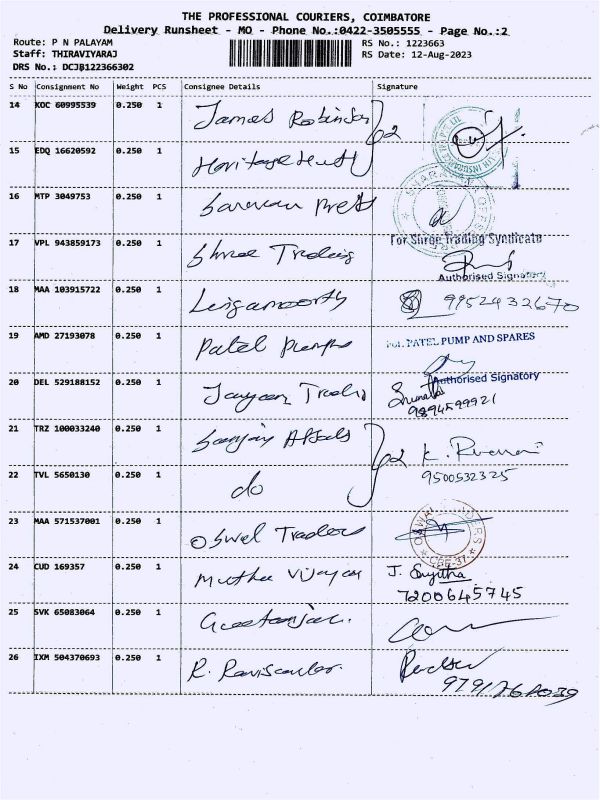 THE PROFESSIONAL COURIERS, COIMBATORE
Delivery Runsheet - MO - Phone No.:0422-3505555 - Page No.:2
Route: P N PALAYAM RS No.: 1223663
Staff: THIRAVIYARAJ RS Date: 12-Aug-2023
DRS No.: DCJB122366302
S No Consignment No Weight PCS Consignee Details Signature
14 KOC 60995539 0.250 1 James Robinson
15 EDQ 16620592 0.250 1 Heritage
16 MTP 3049753 0.250 1 Saravan Press
17 VPL 943859173 0.250 1 Shree Trading For Shree Trading Syndicate
Authorised Signatory
18 MAA 103915722 0.250 1 Lingamoorthy 9952432670
19 AMD 27193078 0.250 1 Patel Pumps For PATEL PUMP AND SPARES
Authorised Signatory
20 DEL 529188152 0.250 1 9894599921
21 TRZ 100033240 0.250 1 Sanjay
22 TVL 5650130 0.250 1 do 9500532325
23 MAA 571537001 0.250 1 Oswal Traders
24 CUD 169357 0.250 1 Muthu Vijayan J. Sujitha
7200645745
25 SVK 65083064 0.250 1 Geetanjali
26 IXM 504370693 0.250 1 R. Ravisankar